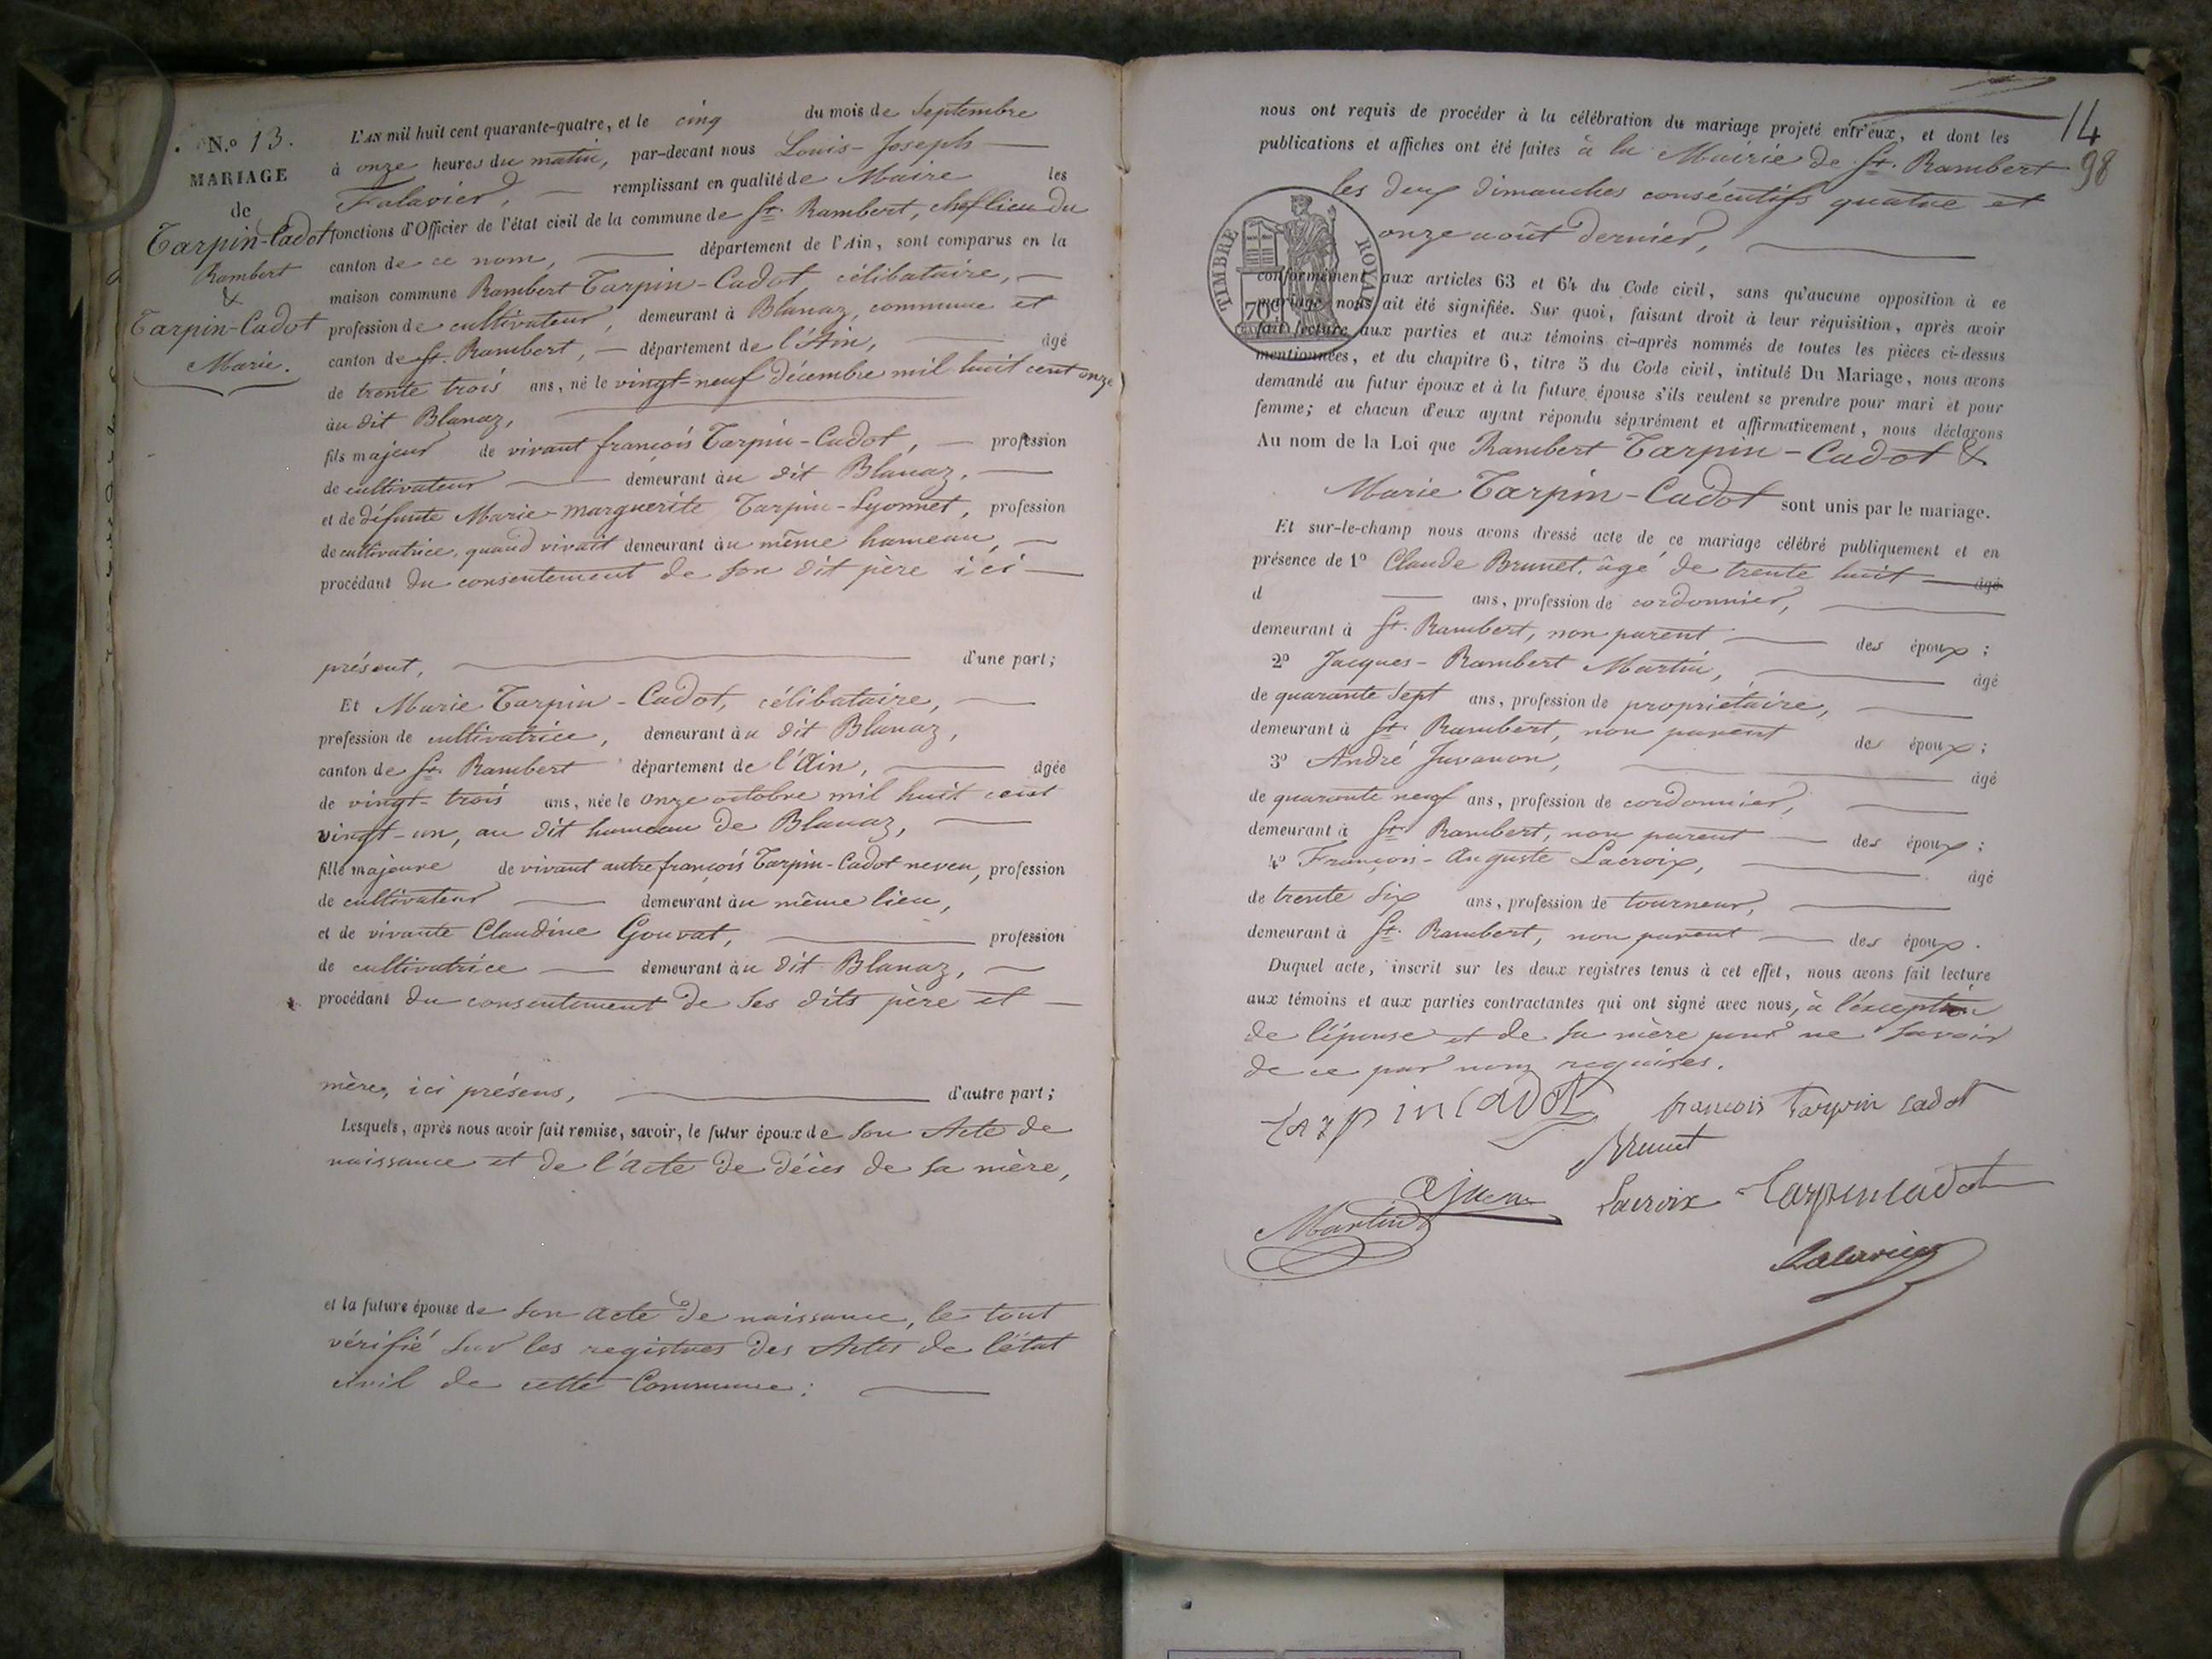 N.o 13.
MARIAGE
de
Tarpin-Cadot
Rambert
&
Tarpin-Cadot
Marie.
L'AN mil huit cent quarante-quatre, et le cinq du mois de Septembre
à onze heures du matin, par-devant nous Louis-Joseph
Falavier, remplissant en qualité de Maire les
fonctions d'Officier de l'état civil de la commune de St. Rambert, chef lieu du
canton de ce nom, département de l'Ain, sont comparus en la
maison commune Rambert Tarpin-Cadot, célibataire,
profession de cultivateur, demeurant à Blanaz, commune et
canton de St. Rambert, département de l'Ain, âgé
de trente trois ans, né le vingt-neuf décembre mil huit cent onze
au dit Blanaz,
fils majeur de vivant françois Tarpin-Cadot, profession
de cultivateur demeurant au dit Blanaz,
et de défunte Marie-marguerite Tarpin-Lyonnet, profession
de cultivatrice, quand vivait demeurant au même hameau,
procédant du consentement de son dit père ici
présent, d'une part;
Et Marie Tarpin-Cadot, célibataire,
profession de cultivatrice, demeurant au dit Blanaz,
canton de St. Rambert département de l'Ain, âgée
de vingt-trois ans, née le onze octobre mil huit cent
vingt-un, au dit hameau de Blanaz,
fille majeure de vivant autre françois Tarpin-Cadot neveu, profession
de cultivateur demeurant au même lieu,
et de vivante Claudine Gouvat, profession
de cultivatrice demeurant au dit Blanaz,
procédant du consentement de ses dits père et
mère, ici présens, d'autre part;
Lesquels, après nous avoir fait remise, savoir, le futur époux de son Acte de
naissance et de l'acte de décès de sa mère,
et la future épouse de son acte de naissance, le tout
vérifié sur les registres des Actes de l'état
civil de cette Commune:
14
98
nous ont requis de procéder à la célébration du mariage projeté entr'eux, et dont les
publications et affiches ont été faites à la Mairie de St. Rambert
les deux dimanches consécutifs quatre et
onze août dernier,
TIMBRE ROYAL
70c
conformément aux articles 63 et 64 du Code civil, sans qu'aucune opposition à ce
mariage nous ait été signifiée. Sur quoi, faisant droit à leur réquisition, après avoir
fait lecture aux parties et aux témoins ci-après nommés de toutes les pièces ci-dessus
mentionnées, et du chapitre 6, titre 5 du Code civil, intitulé Du Mariage, nous avons
demandé au futur époux et à la future épouse s'ils veulent se prendre pour mari et pour
femme; et chacun d'eux ayant répondu séparément et affirmativement, nous déclarons
Au nom de la Loi que Rambert Tarpin-Cadot &
Marie Tarpin-Cadot sont unis par le mariage.
Et sur-le-champ nous avons dressé acte de ce mariage célébré publiquement et en
présence de 1º Claude Brunet, âgé de trente huit âgé
d ans, profession de cordonnier,
demeurant à St. Rambert, non parent des époux;
2º Jacques-Rambert Martin, âgé
de quarante sept ans, profession de propriétaire,
demeurant à St. Rambert, non parent des époux;
3º André Juvanon, âgé
de quarante neuf ans, profession de cordonnier,
demeurant à St. Rambert, non parent des époux;
4º François-Auguste Lacroix, âgé
de trente six ans, profession de tourneur,
demeurant à St. Rambert, non parent des époux.
Duquel acte, inscrit sur les deux registres tenus à cet effet, nous avons fait lecture
aux témoins et aux parties contractantes qui ont signé avec nous, à l'exception
de l'épouse et de sa mère pour ne savoir
de ce par nous requises.
tarpin cadot françois tarpin cadot
Brunet
Martin Lacroix Tarpin cadot
Falavier